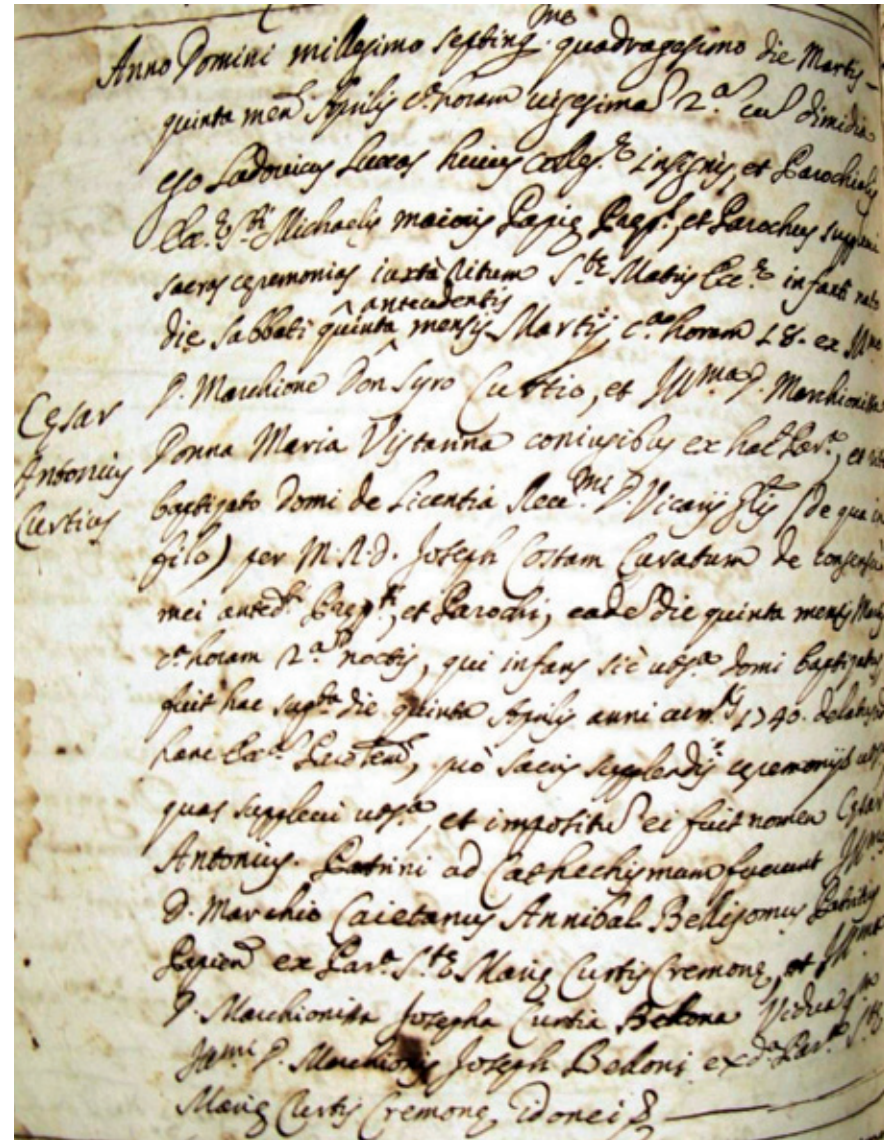 Anno Domini millesimo septing.mo quadragesimo die Martis
quinta men. Aprilis c.a horam vigesimam 2.a cum dimidia
ego Ludovicus huius Colleg.e Insignis, et Parochialis
Ecc.e S.ti Michaelis maioris Papię Pręp.s, et Parochus supplevi
sacras cęremonias iuxta Ritum S.tę Matris Ecc.ę infanti nato
die Sabbati quinta antecedentis mensis Martij c.a horam 18. ex Ill.mo
D. Marchione Don Syro Curtio, et Ill.ma D. Marchionissa
Cęsar
Antonius
Curtius
Donna Maria Vistarina coniugibus ex hac Par.a, et
baptizato domi de Licentia Rev.mi D. Vicarij G.lis (de qua in
filo) per M.R.D. Joseph Costam Curatum de consensu
mei anted.ti Pręp.ti, et Parochi, eadem die quinta mensis Martij
c.a horam 2.a noctis, qui infans sic ubs.a domi baptizatus
fuit hac sup.ta die quinta Aprilis anni 1740. delatus ad
hanc Ecc.am, pro sacris supplendis cęremonijs
quas supplevi ubs.a, et impositum ei fuit nomen Cęsar
Antonius. Patrini ad Cathechismum fuerunt Ill.mus
D. Marchio Caietanus Annibal Bellisomus Patritius
Papien. ex Par.a S.tę Marię Curtis Cremonę, et Ill.ma
D. Marchionissa Josepha Curtia Bellona Vidua q.m
Ill.mi D. Marchionis Joseph Belloni ex d.a Par.a S.tę
Marię Curtis Cremonę idonei &